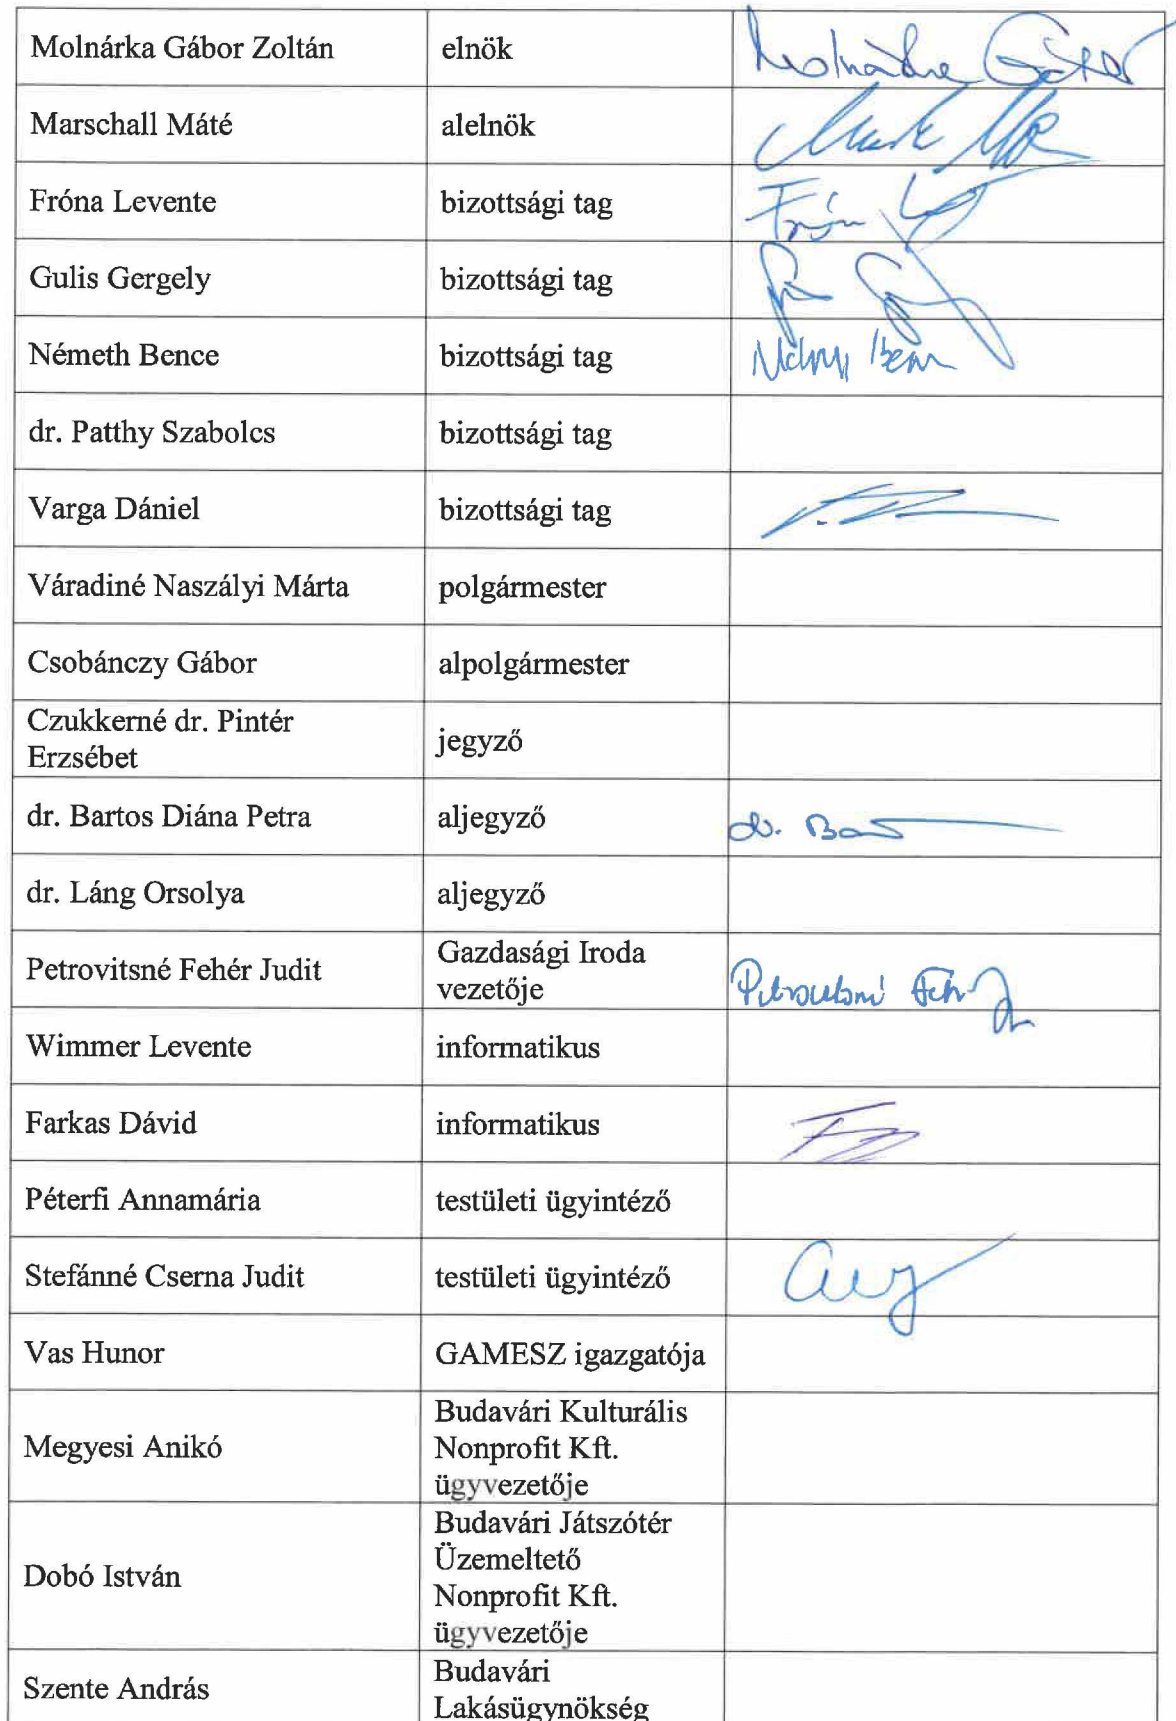 Molnárka Gábor Zoltán elnök Molnárka Gábor
Marschall Máté alelnök
Fróna Levente bizottsági tag
Gulis Gergely bizottsági tag
Németh Bence bizottsági tag
dr. Patthy Szabolcs bizottsági tag
Varga Dániel bizottsági tag
Váradiné Naszályi Márta polgármester
Csobánczy Gábor alpolgármester
Czukkerné dr. Pintér
Erzsébet
jegyző
dr. Bartos Diána Petra aljegyző dr. Ba
dr. Láng Orsolya aljegyző
Petrovitsné Fehér Judit
Gazdasági Iroda
vezetője
Wimmer Levente informatikus
Farkas Dávid informatikus
Péterfi Annamária testületi ügyintéző
Stefánné Cserna Judit testületi ügyintéző
Vas Hunor GAMESZ igazgatója
Megyesi Anikó
Budavári Kulturális
Nonprofit Kft.
ügyvezetője
Dobó István
Budavári Játszótér
Üzemeltető
Nonprofit Kft.
ügyvezetője
Szente András
Budavári
Lakásügynökség